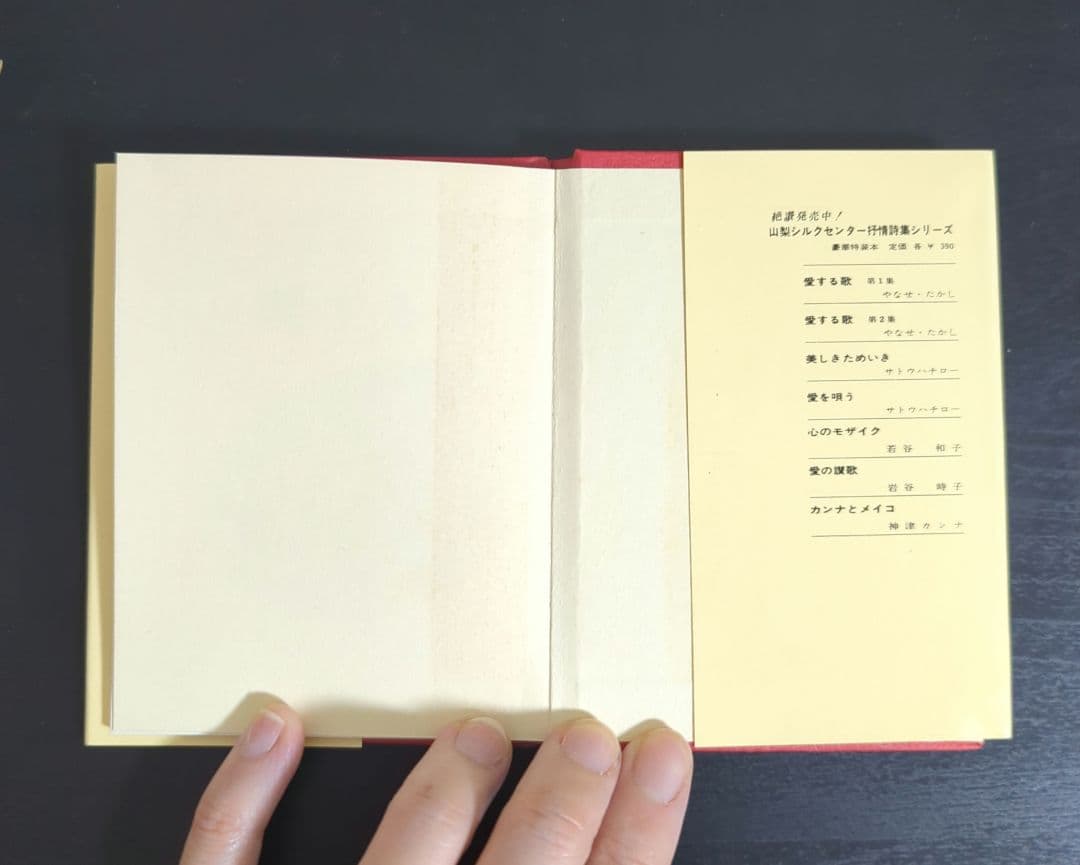 絶讃発売中!
山梨シルクセンター抒情詩集シリーズ
豪華特装本 定価 各 ¥ 390
愛する歌 第1集
やなせ・たかし
愛する歌 第2集
やなせ・たかし
美しきためいき
サトウハチロー
愛を唄う
サトウハチロー
心のモザイク
若谷 和子
愛の讃歌
岩谷 時子
カンナとメイコ
神津カンナ